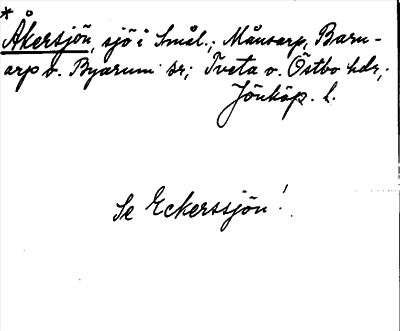 *
Åkersjön, sjö i Smål.; Månsarp, Barn-
arp o. Byarum sr; Tveta o. Östbo hdr;
Jönköp. l.
Se Eckerssjön!